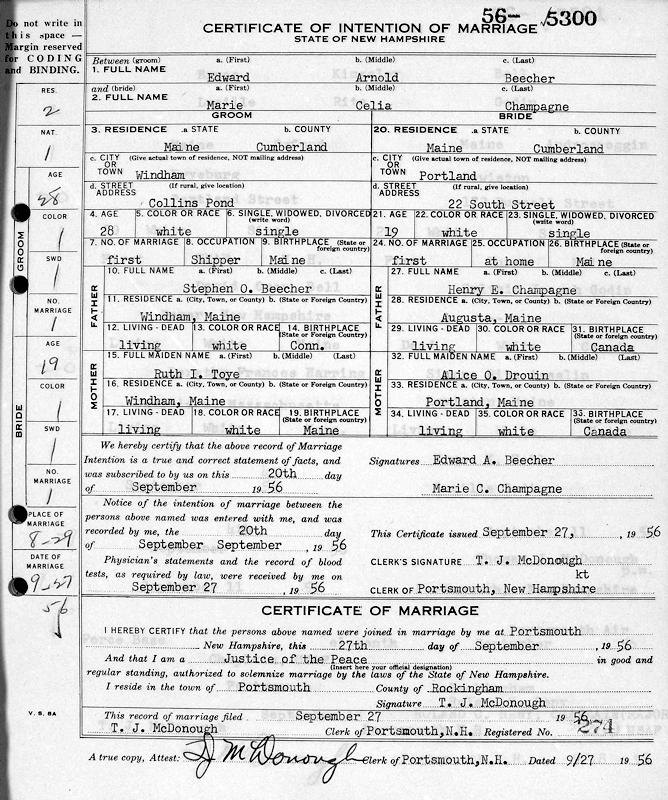 Do not write in
this space —
Margin reserved
for CODING
and BINDING.
56- √5300
CERTIFICATE OF INTENTION OF MARRIAGE
STATE OF NEW HAMPSHIRE
Between (groom) a. (First) b. (Middle) c. (Last)
1. FULL NAME Edward Arnold Beecher
and (bride) a. (First) b. (Middle) c. (Last)
2. FULL NAME Marie Celia Champagne
GROOM BRIDE
3. RESIDENCE .a STATE b. COUNTY 20. RESIDENCE .a STATE b. COUNTY
Maine Cumberland Maine Cumberland
c. CITY OR TOWN (Give actual town of residence, NOT mailing address) c. CITY OR TOWN (Give actual town of residence, NOT mailing address)
Windham Portland
d. STREET ADDRESS (If rural, give location) d. STREET ADDRESS (If rural, give location)
Collins Pond 22 South Street
4. AGE 5. COLOR OR RACE 6. SINGLE, WIDOWED, DIVORCED (write in) 21. AGE 22. COLOR OR RACE 23. SINGLE, WIDOWED, DIVORCED (write in)
28 white single 19 white single
7. NO. OF MARRIAGE 8. OCCUPATION 9. BIRTHPLACE (State or foreign country) 24. NO. OF MARRIAGE 25. OCCUPATION 26. BIRTHPLACE (State or foreign country)
first Shipper Maine first at home Maine
FATHER 10. FULL NAME a. (First) b. (Middle) c. (Last) FATHER 27. FULL NAME a. (First) b. (Middle) c. (Last)
Stephen O. Beecher Henry E. Champagne
11. RESIDENCE a. (City, Town, or County) b. (State or Foreign Country) 28. RESIDENCE a. (City, Town, or County) b. (State or Foreign Country)
Windham, Maine Augusta, Maine
12. LIVING - DEAD 13. COLOR OR RACE 14. BIRTHPLACE (State or foreign country) 29. LIVING - DEAD 30. COLOR OR RACE 31. BIRTHPLACE (State or foreign country)
living white Conn. living white Canada
MOTHER 15. FULL MAIDEN NAME a. (First) b. (Middle) (Last) MOTHER 32. FULL MAIDEN NAME a. (First) b. (Middle) c. (Last)
Ruth I. Toye Alice O. Drouin
16. RESIDENCE a. (City, Town, or County) b. (State or Foreign Country) 33. RESIDENCE a. (City, Town, or County) b. (State or Foreign Country)
Windham, Maine Portland, Maine
17. LIVING - DEAD 18. COLOR OR RACE 19. BIRTHPLACE (State or foreign country) 34. LIVING - DEAD 35. COLOR OR RACE 33. BIRTHPLACE (State or foreign country)
living white Maine living white Canada
We hereby certify that the above record of Marriage
Intention is a true and correct statement of facts, and Signatures Edward A. Beecher
was subscribed to by us on this 20th day
of September 19 56 Marie C. Champagne
Notice of the intention of marriage between the
persons above named was entered with me, and was
recorded by me, the 20th day This Certificate issued September 27, , 19 56
of September September , 19 56
Physician's statements and the record of blood CLERK'S SIGNATURE T. J. McDonough
tests, as required by law, were received by me on kt
September 27 19 56 CLERK OF Portsmouth, New Hampshire
CERTIFICATE OF MARRIAGE
I HEREBY CERTIFY that the persons above named were joined in marriage by me at Portsmouth
New Hampshire, this 27th day of September , 19 56
And that I am a Justice of the Peace in good and
(Insert here your official designation)
regular standing, authorized to solemnize marriage by the laws of the State of New Hampshire.
I reside in the town of Portsmouth County of Rockingham
Signature T. J. McDonough
This record of marriage filed September 27 19 56
T. J. McDonough Clerk of Portsmouth, N.H. Registered No. 274
A true copy, Attest: T J McDonough Clerk of Portsmouth, N.H. Dated 9/27 19 56
RES.
2
NAT.
1
GROOM
AGE
28
COLOR
1
SWD
1
NO. MARRIAGE
1
BRIDE
AGE
19
COLOR
1
SWD
1
NO. MARRIAGE
1
PLACE OF MARRIAGE
8-29
DATE OF MARRIAGE
9-27
56
V. S. 8A